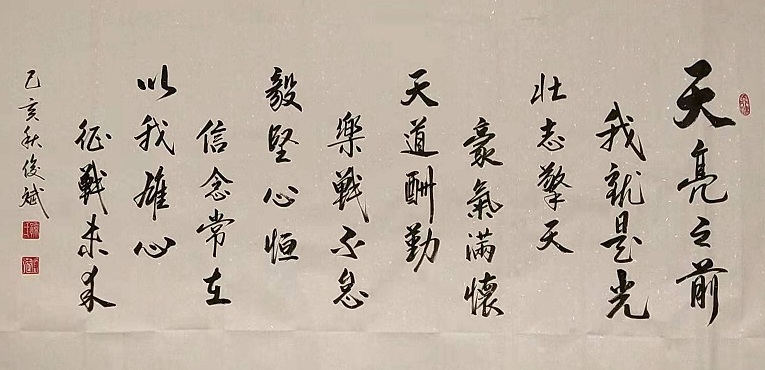 天亮之前
我就是光
壮志擎天
豪氣滿懷
天道酬勤
樂戰不息
毅堅心恒
信念常在
以我雄心
征戰未来
己亥秋俊斌